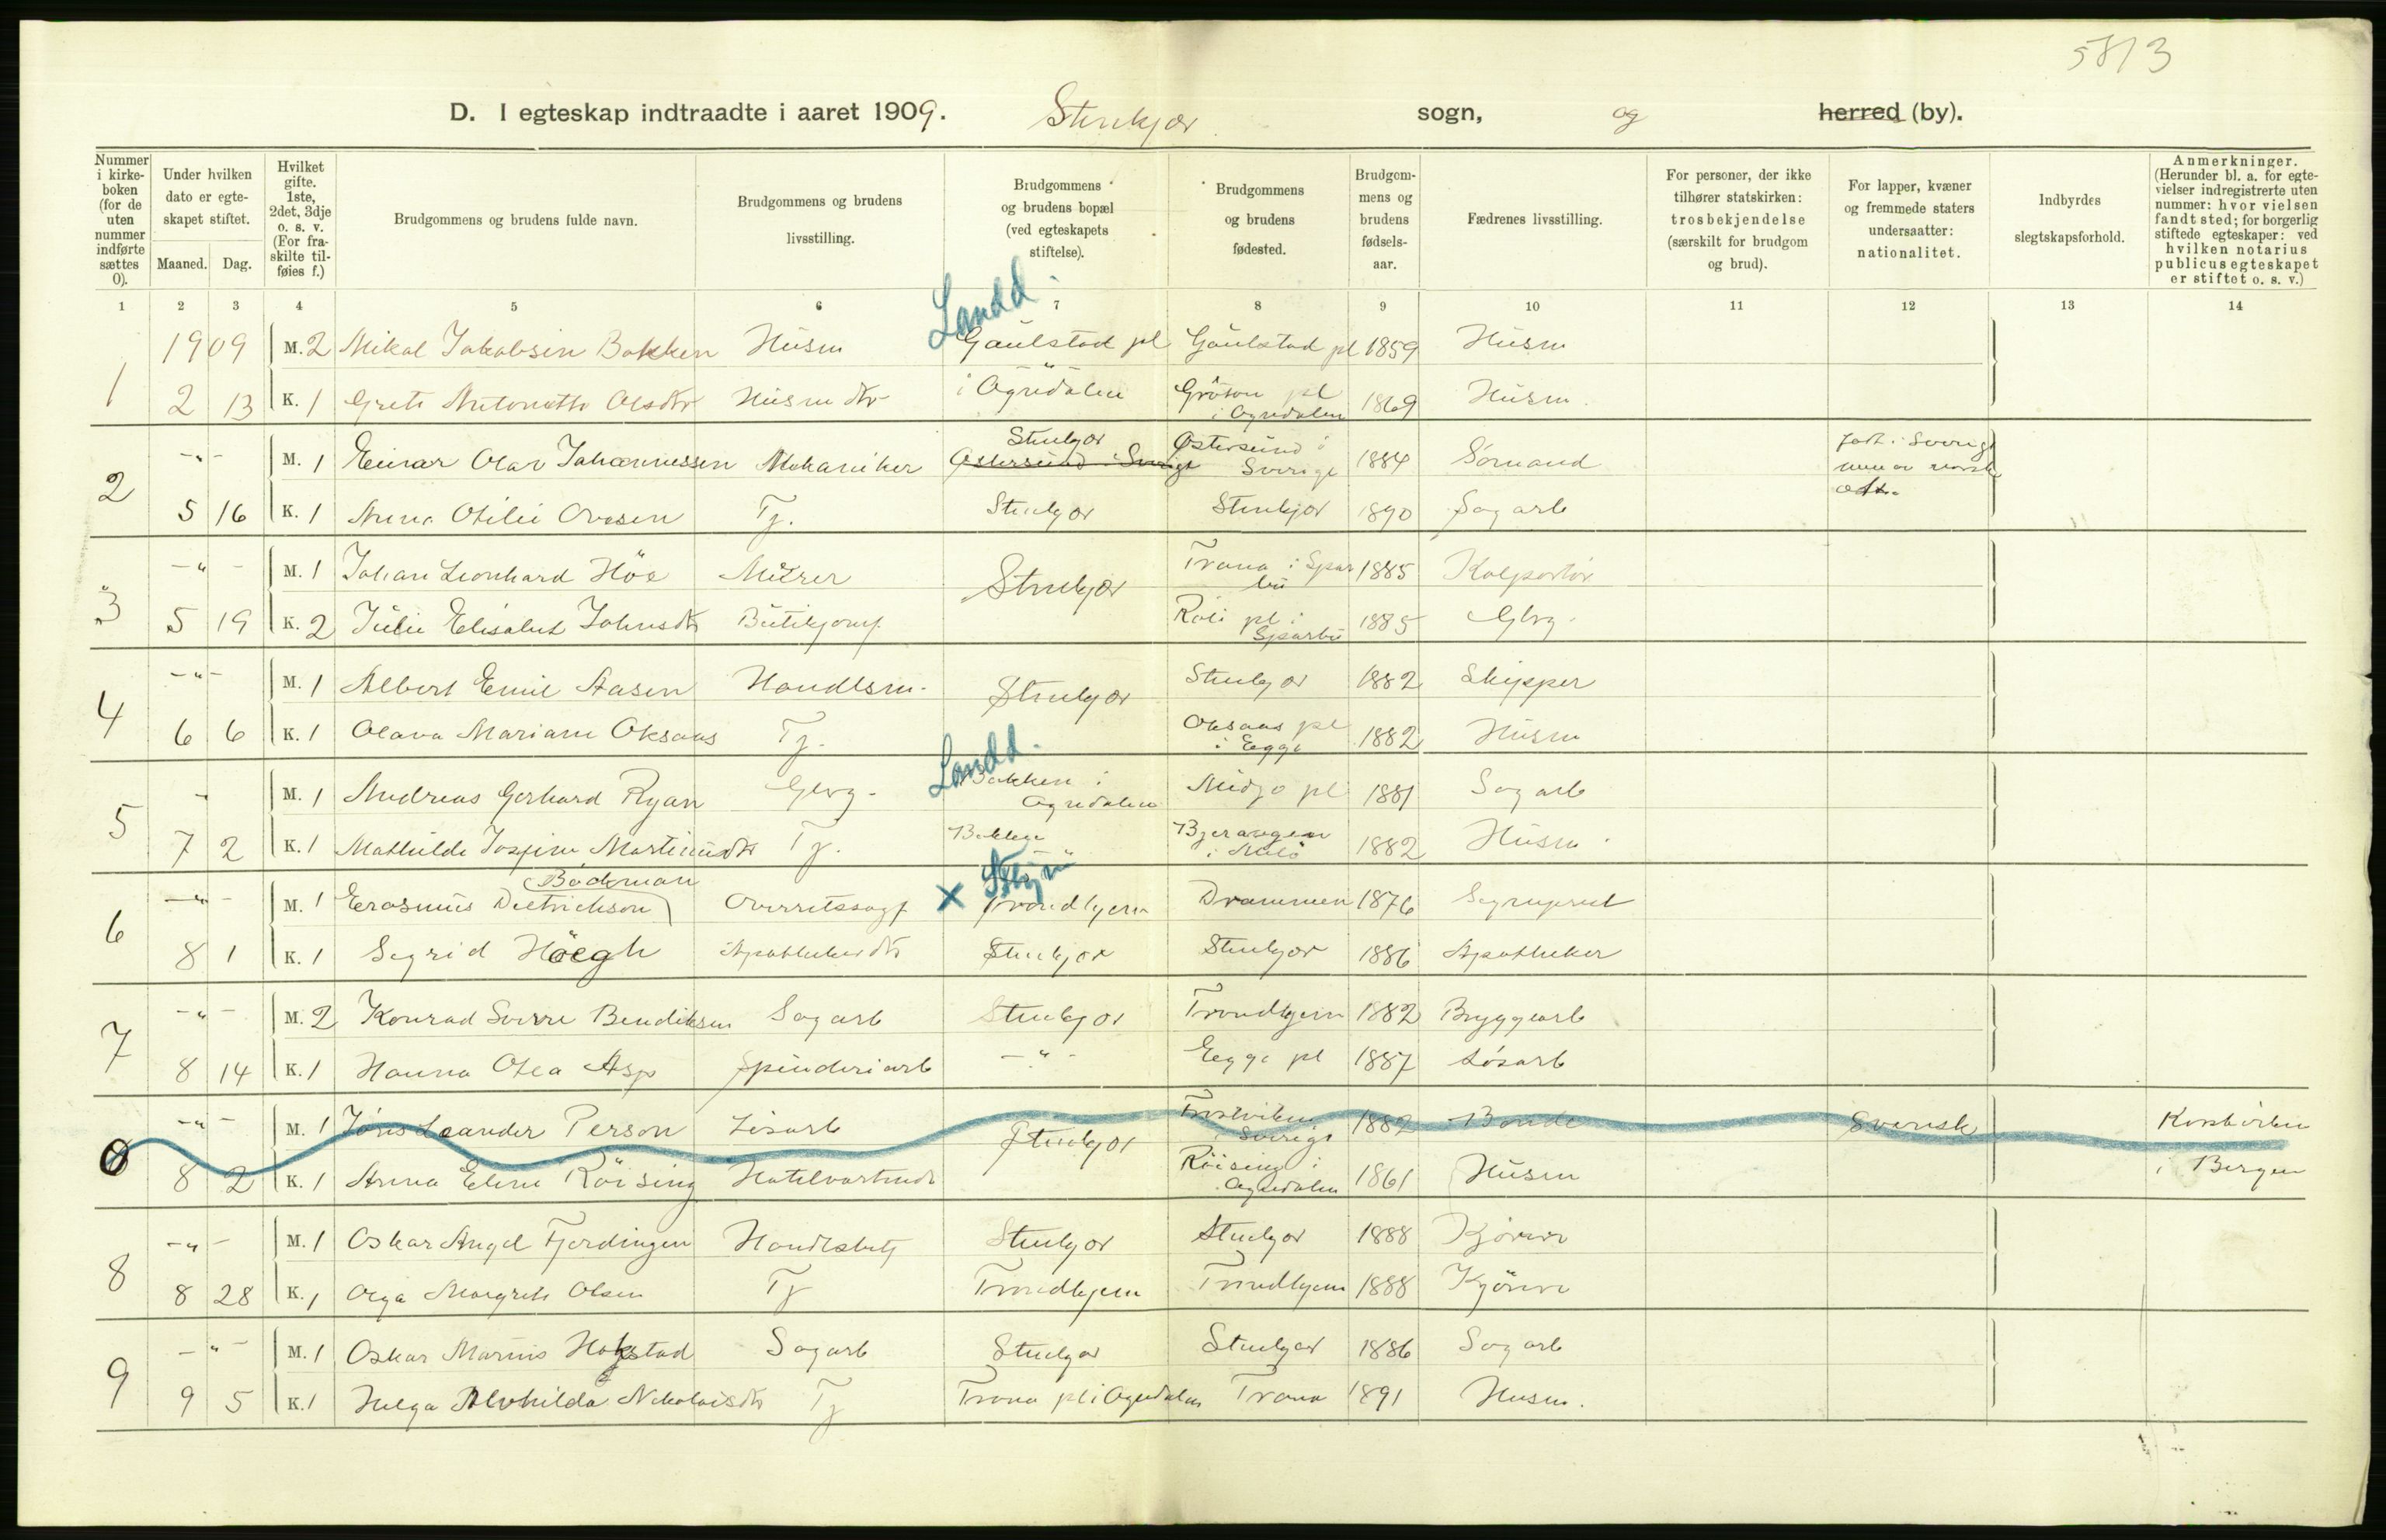 5813
D. I egteskap indtraadte i aaret 1909. Stenkjær sogn, og herred (by).
Nummer i kirkeboken (for de uten nummer indførte sættes 0).
Under hvilken dato er egteskapet stiftet.
Maaned. Dag.
Hvilket gifte. 1ste, 2det, 3dje o. s. v. (For fraskilte tilføies f.)
Brudgommens og brudens fulde navn.
Brudgommens og brudens livsstilling.
Brudgommens og brudens bopæl (ved egteskapets stiftelse).
Brudgommens og brudens fødested.
Brudgommens og brudens fødselsaar.
Fædrenes livsstilling.
For personer, der ikke tilhører statskirken: trosbekjendelse (særskilt for brudgom og brud).
For lapper, kvæner og fremmede staters undersaatter: nationalitet.
Indbyrdes slegtskapsforhold.
Anmerkninger. (Herunder bl. a. for egtevielser indregistrerte uten nummer: hvor vielsen fandt sted; for borgerlig stiftede egteskaper: ved hvilken notarius publicus egteskapet er stiftet o. s. v.)
1 2 3 4 5 6 7 8 9 10 11 12 13 14
Landd.
1 1909 M. 2 Mikal Jakobsen Bakken Husm Gaulstad pl Gaulstad pl 1859 Husm
2 13 K. 1 Grete Antonette Olsdtr Husm dtr i Ogndalen Gröton pl i Ogndalen 1869 Husm.
2 -"- M. 1 Einar Olav Johannessen Mekaniker Stenkjær Østersund i Sverige Østersund i Sverige 1884 Sømand født i Sverige men av norsk ætt.
5 16 K. 1 Anna Otilie Ovesen Tj. Stenkjær Stenkjær 1890 Sagarb
3 -"- M. 1 Johan Leonhard Höe Murer Stenkjær Trana i Sparbu 1885 Kolportör
5 19 K. 2 Julie Elisabet Johnsdtr Butikjomf. Roli pl i Sparbu 1885 Gbrg.
4 -"- M. 1 Albert Emil Aasen Handlsm. Stenkjær Stenkjær 1882 Skipper
6 6 K. 1 Olava Mariane Oksaas Tj. Oksaas pl i Egge 1882 Husm
Landd.
5 - M. 1 Andreas Gerhard Ryan Gbrg. Bakken i Ogndalen Midjo pl 1881 Sagarb
7 2 K. 1 Mathilde Josefine Martinusdtr Tj. Bakken -"- Bjerangen i Melö 1882 Husm.
6 -"- M. 1 Erasmus Dietrichson Bödtman Overretssagf x Trondhjem Drammen 1876
8 1 K. 1 Sigrid Höegh Apothekerdtr Stenkjær Stenkjær 1886 Apotheker
7 -"- M. 2 Konrad Sverre Bendiksen Sagarb Stenkjær Trondhjem 1882 Bryggearb
8 14 K. 1 Hanna Olea Asp Spinderiarb -"- Egge pl 1887 Løsarb
0 -"- M. 1 Jöns Leander Person Løsarb Stenkjær i Sverige 1882 Bonde Svensk
8 2 K. 1 Anna Eline Röising Hotelvertinde Röising i Ogndalen 1861 Husm i Bergen
8 -"- M. 1 Oskar Angel Fjerdingen Handlsbetj Stenkjær Stenkjær 1888 Kjörer
8 28 K. 1 Olga Margrete Olsen Tj Trondhjem Trondhjem 1888 Kjörer
9 -"- M. 1 Oskar Marius Hokstad Sagarb Stenkjær Stenkjær 1886 Sagarb
9 5 K. 1 Helga Alvhilda Nikolaisdtr Tj Trana pl i Ogndalen Trana 1891 Husm.